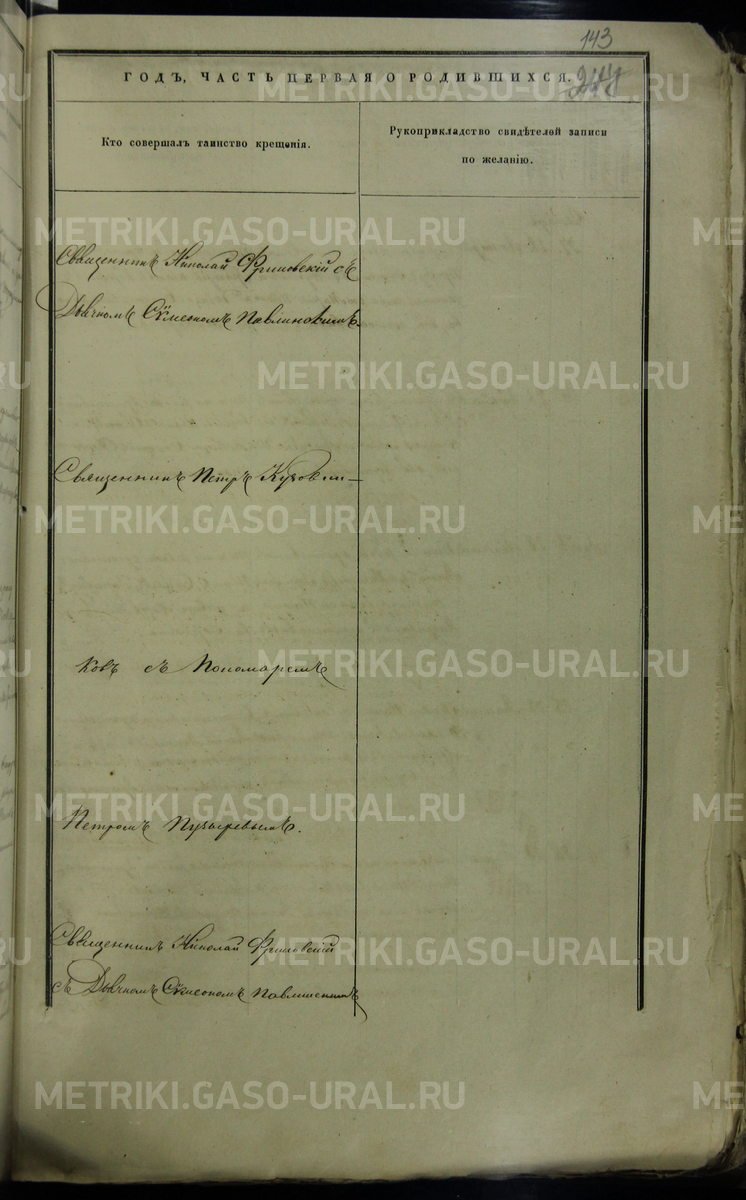 143
ГОДЪ, ЧАСТЬ ПЕРВАЯ О РОДИВШИХСЯ.
Кто совершалъ таинство крещенія.
Рукоприкладство свидѣтелей записи
по желанію.
Священникъ Николай съ
Дьячкомъ Сѵмеономъ Павлиновымъ.
Священникъ Петръ Кузовни-
ковъ съ Пономаремъ
Петромъ Пузыревымъ.
Священникъ Николай
съ Дьячкомъ Сѵмеономъ
METRIKI.GASO-URAL.RU